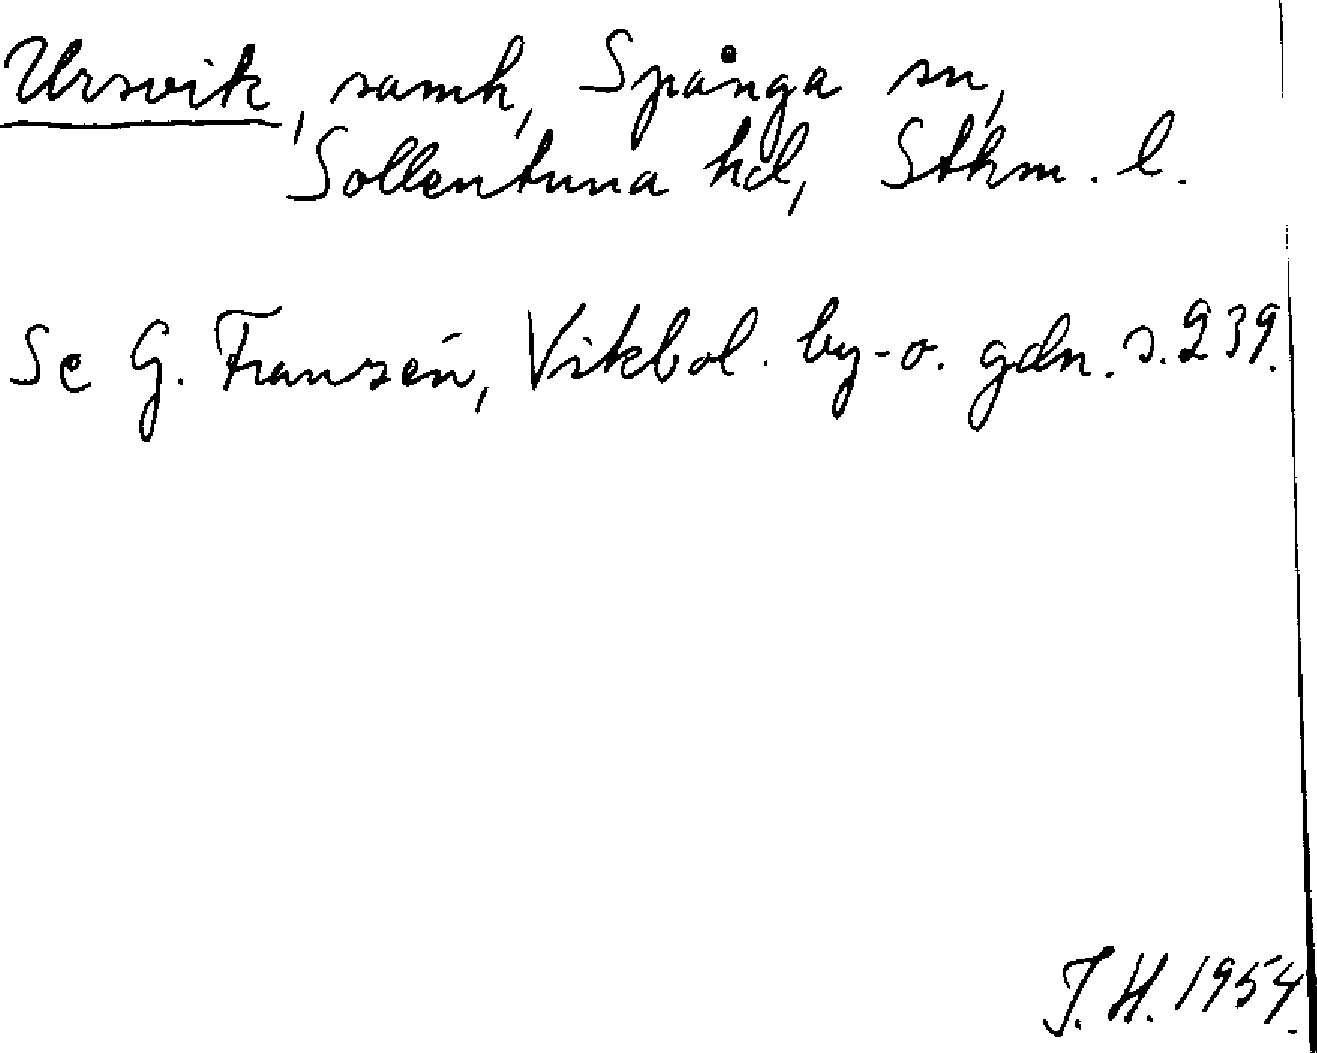 Ursvik, samh, Spånga sn,
Sollentuna hd, Sthm. l.
Se G. Franzén, Vikbol. by- o. gdn. s. 239.
J. H. 1954.